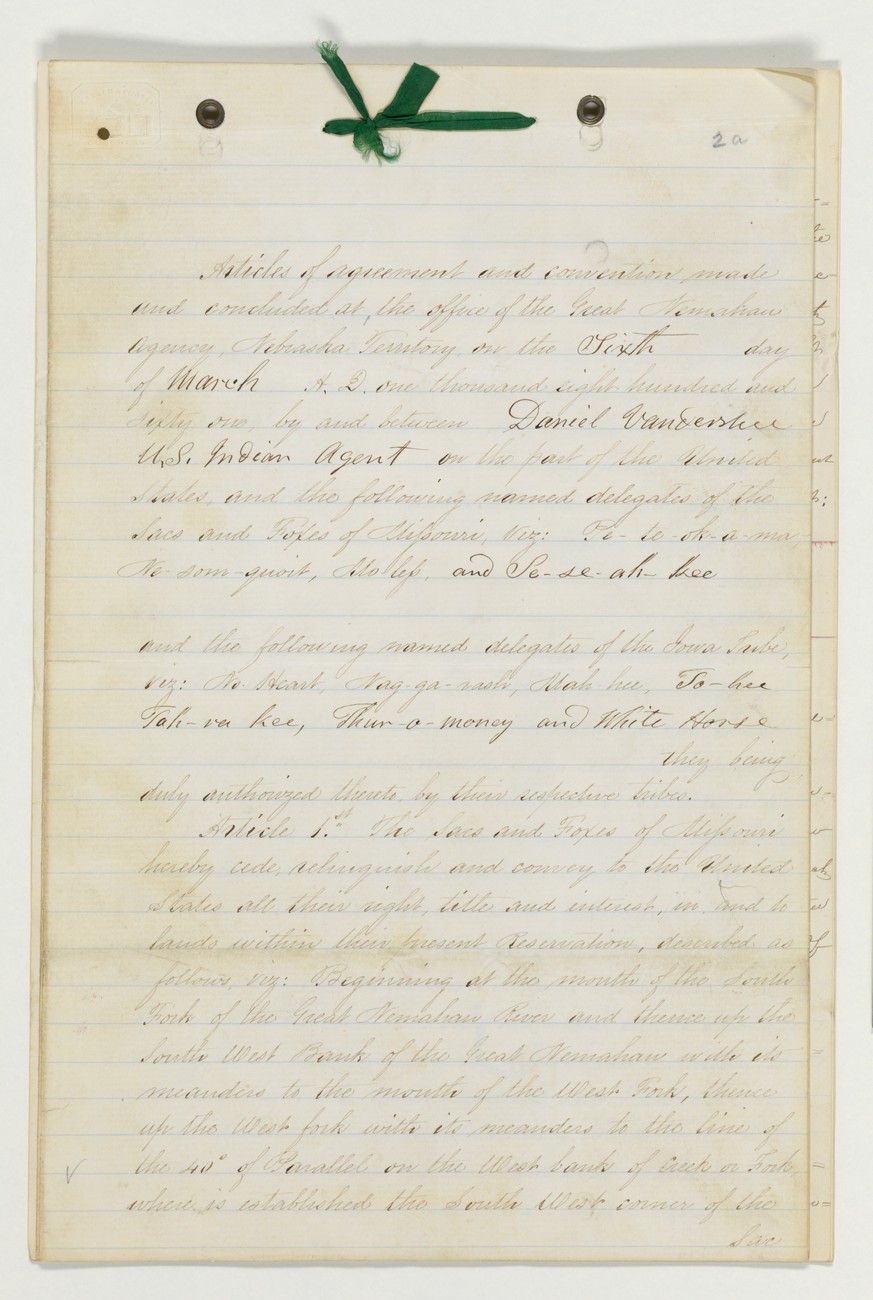 2a
Articles of agreement and convention made
and concluded at, the office of the Great Nemahaw
Agency, Nebraska Territory on the Sixth day
of March A. D. one thousand eight hundred and
sixty one, by and between Daniel Vanderslice
U.S. Indian Agent on the part of the United
States, and the following named delegates of the
Sacs and Foxes of Missouri, viz: Pe-te-ok-a-ma,
Ne-som-quoit, Mo-less, and Se-se-ah-kee
and the following named delegates of the Iowa Tribe,
viz: No-Heart, Nag-ga-rash, Mah-hee, To-hee
Tah-ra-kee, Thur-o-money and White Horse
they being
duly authorized thereto by their respective tribes.
Article 1.st The Sacs and Foxes of Missouri
hereby cede, relinquish and convey to the United
States all their right, title and interest, in and to
lands within their present Reservation, described as
follows, viz: Beginning at the mouth of the South
Fork of the Great Nemahaw River and thence up the
South West Bank of the Great Nemahaw with its
meanders to the mouth of the West Fork, thence
up the West fork with its meanders to the line of
the 40° of Parallel on the West bank of Creek or Fork,
where is established the South West corner of the
Sac